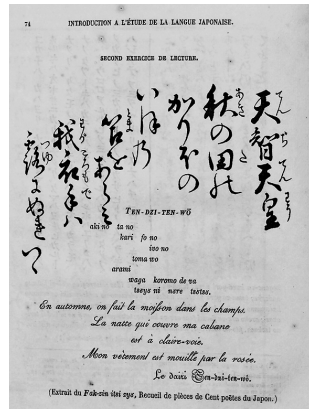 74 INTRODUCTION A L'ÉTUDE DE LA LANGUE JAPONAISE.
SECOND EXERCICE DE LECTURE.
天智天皇
秋の田の
かりほの
いほ乃
苫をあらミ
衣手ハ
露にぬれつゝ
TEN-DZI-TEN-WÔ
aki no ta no
kari fo no
ivo no
toma wo
arami
waga koromo de va
ni
En automne, on fait la moisson dans les champs.
La natte qui couvre ma cabane
est à claire-voie.
Mon vêtement est mouillé par la rosée.
Le daïri Ten-dzi-ten-wô.
(Extrait du Fak-nin itsi syu, Recueil de pièces de Cent poëtes du Japon.)